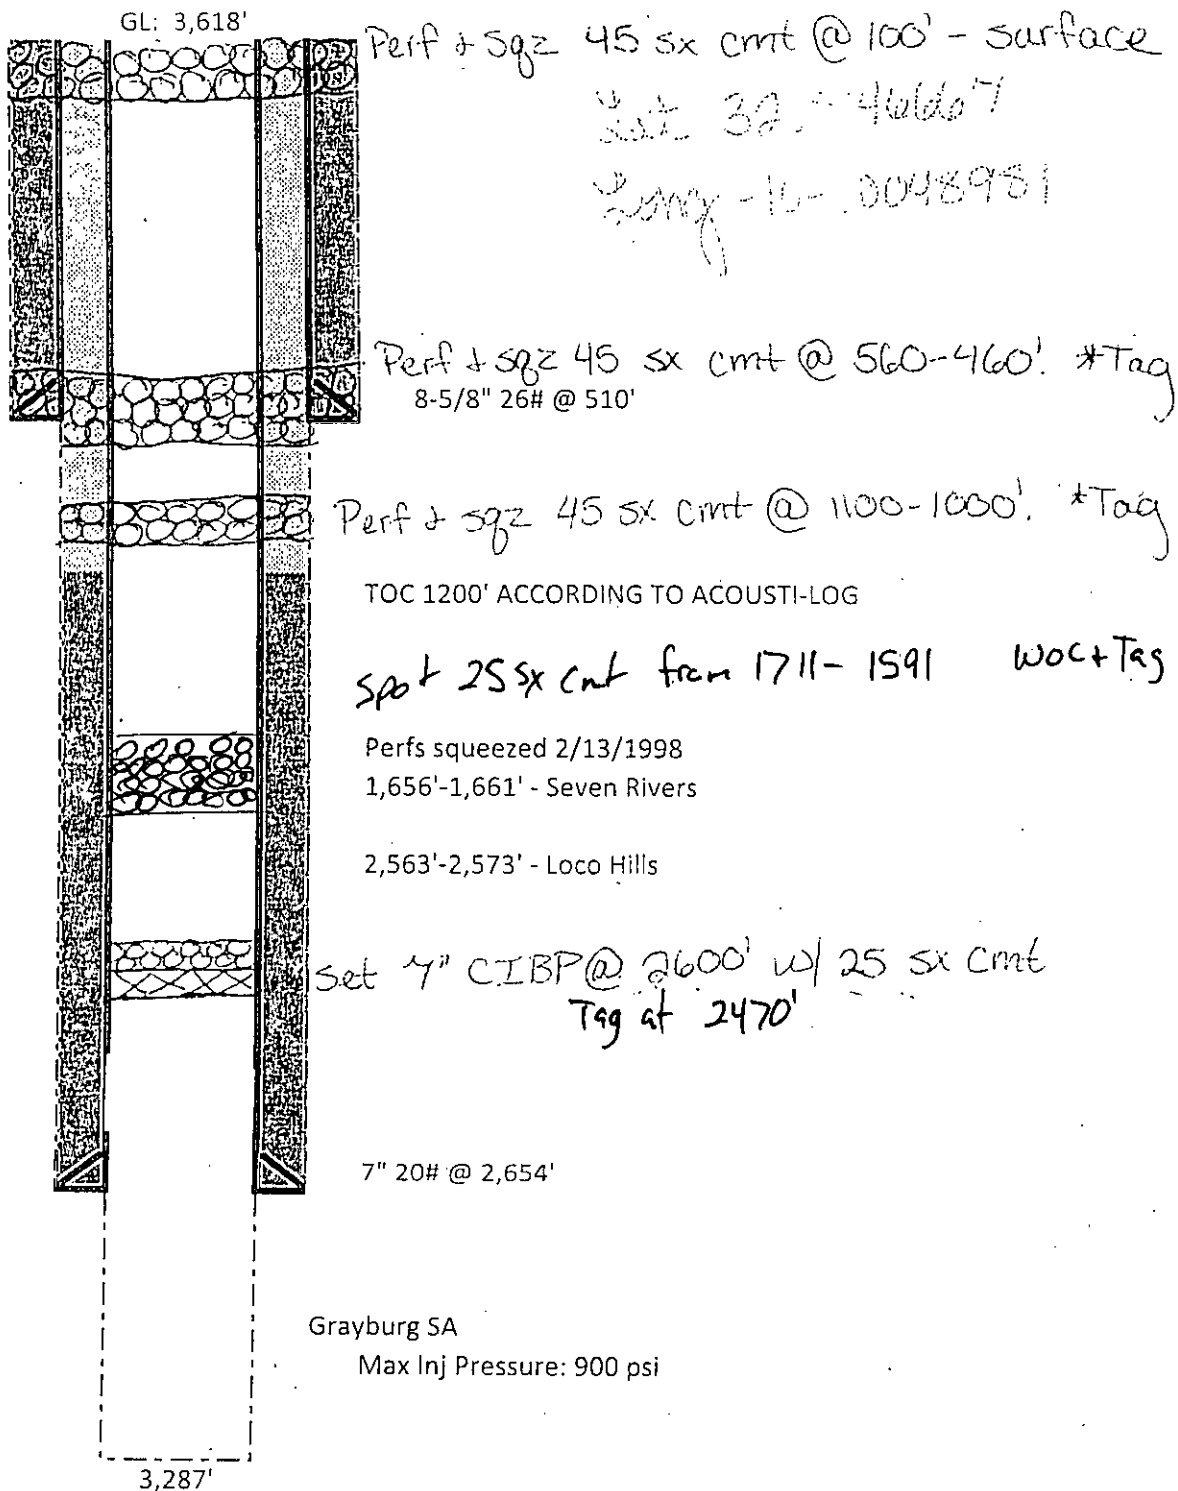 GL: 3,618'
Perf & Sqz 45 sx cmt @ 100' - surface
Lat 32.
Long - .0048981
Perf & sqz 45 sx cmt @ 560-460'. *Tag
8-5/8" 26# @ 510'
Perf & sqz 45 sx cmt @ 1100-1000'. *Tag
TOC 1200' ACCORDING TO ACOUSTI-LOG
spot 25 sx cmt from 1711- 1591 WOC & Tag
Perfs squeezed 2/13/1998
1,656'-1,661' - Seven Rivers
2,563'-2,573' - Loco Hills
Set 7" CIBP @ 2600' w/ 25 sx cmt
Tag at 2470'
7" 20# @ 2,654'
Grayburg SA
Max Inj Pressure: 900 psi
3,287'